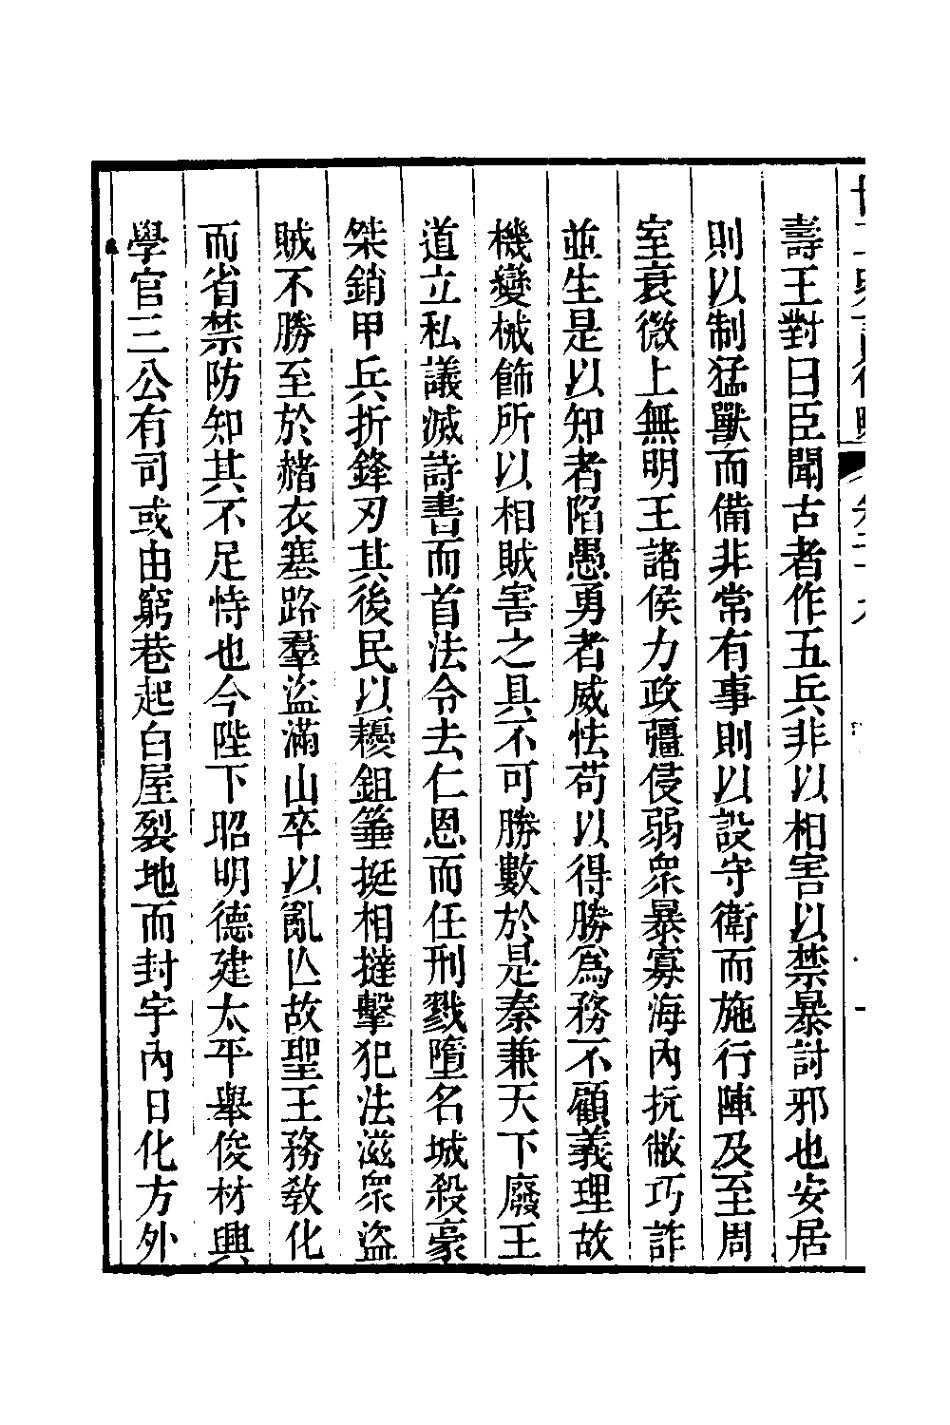 壽王對曰臣聞古者作五兵非以相害以禁暴討邪也安居
則以制猛獸而備非常有事則以設守衛而施行陣及至周
室衰微上無明王諸侯力政彊侵弱衆暴寡海內抗敝巧詐
並生是以知者陷愚勇者威怯苟以得勝爲務不顧義理故
機變械飾所以相賊害之具不可勝數於是秦兼天下廢王
道立私議滅詩書而首法令去仁恩而任刑戮墮名城殺豪
桀銷甲兵折鋒刃其後民以耰鉏箠挺相撻擊犯法滋衆盜
賊不勝至於赭衣塞路羣盜滿山卒以亂亾故聖王務敎化
而省禁防知其不足恃也今陛下昭明德建太平舉俊材興
學官三公有司或由窮巷起白屋裂地而封宇內日化方外